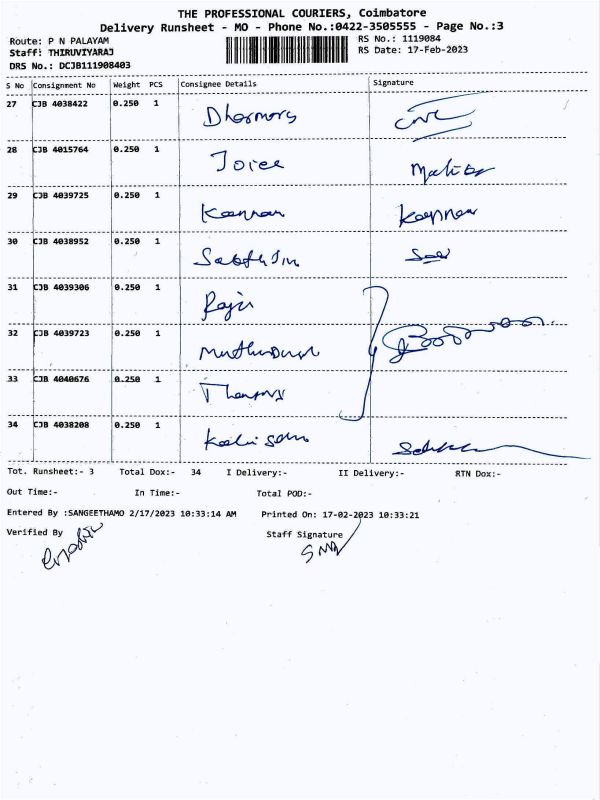 THE PROFESSIONAL COURIERS, Coimbatore
Delivery Runsheet - MO - Phone No.:0422-3505555 - Page No.:3
Route: P N PALAYAM
RS No.: 1119084
Staff: THIRUVIYARAJ
RS Date: 17-Feb-2023
DRS No.: DCJB111908403
S No Consignment No Weight PCS Consignee Details Signature
27 CJB 4038422 0.250 1
28 CJB 4015764 0.250 1 Joice
29 CJB 4039725 0.250 1 Kannan Kannan
30 CJB 4038952 0.250 1
31 CJB 4039306 0.250 1 Raju
32 CJB 4039723 0.250 1
33 CJB 4040676 0.250 1
34 CJB 4038208 0.250 1
Tot. Runsheet:- 3 Total Dox:- 34 I Delivery:- II Delivery:- RTN Dox:-
Out Time:- In Time:- Total POD:-
Entered By :SANGEETHAMO 2/17/2023 10:33:14 AM Printed On: 17-02-2023 10:33:21
Verified By Staff Signature